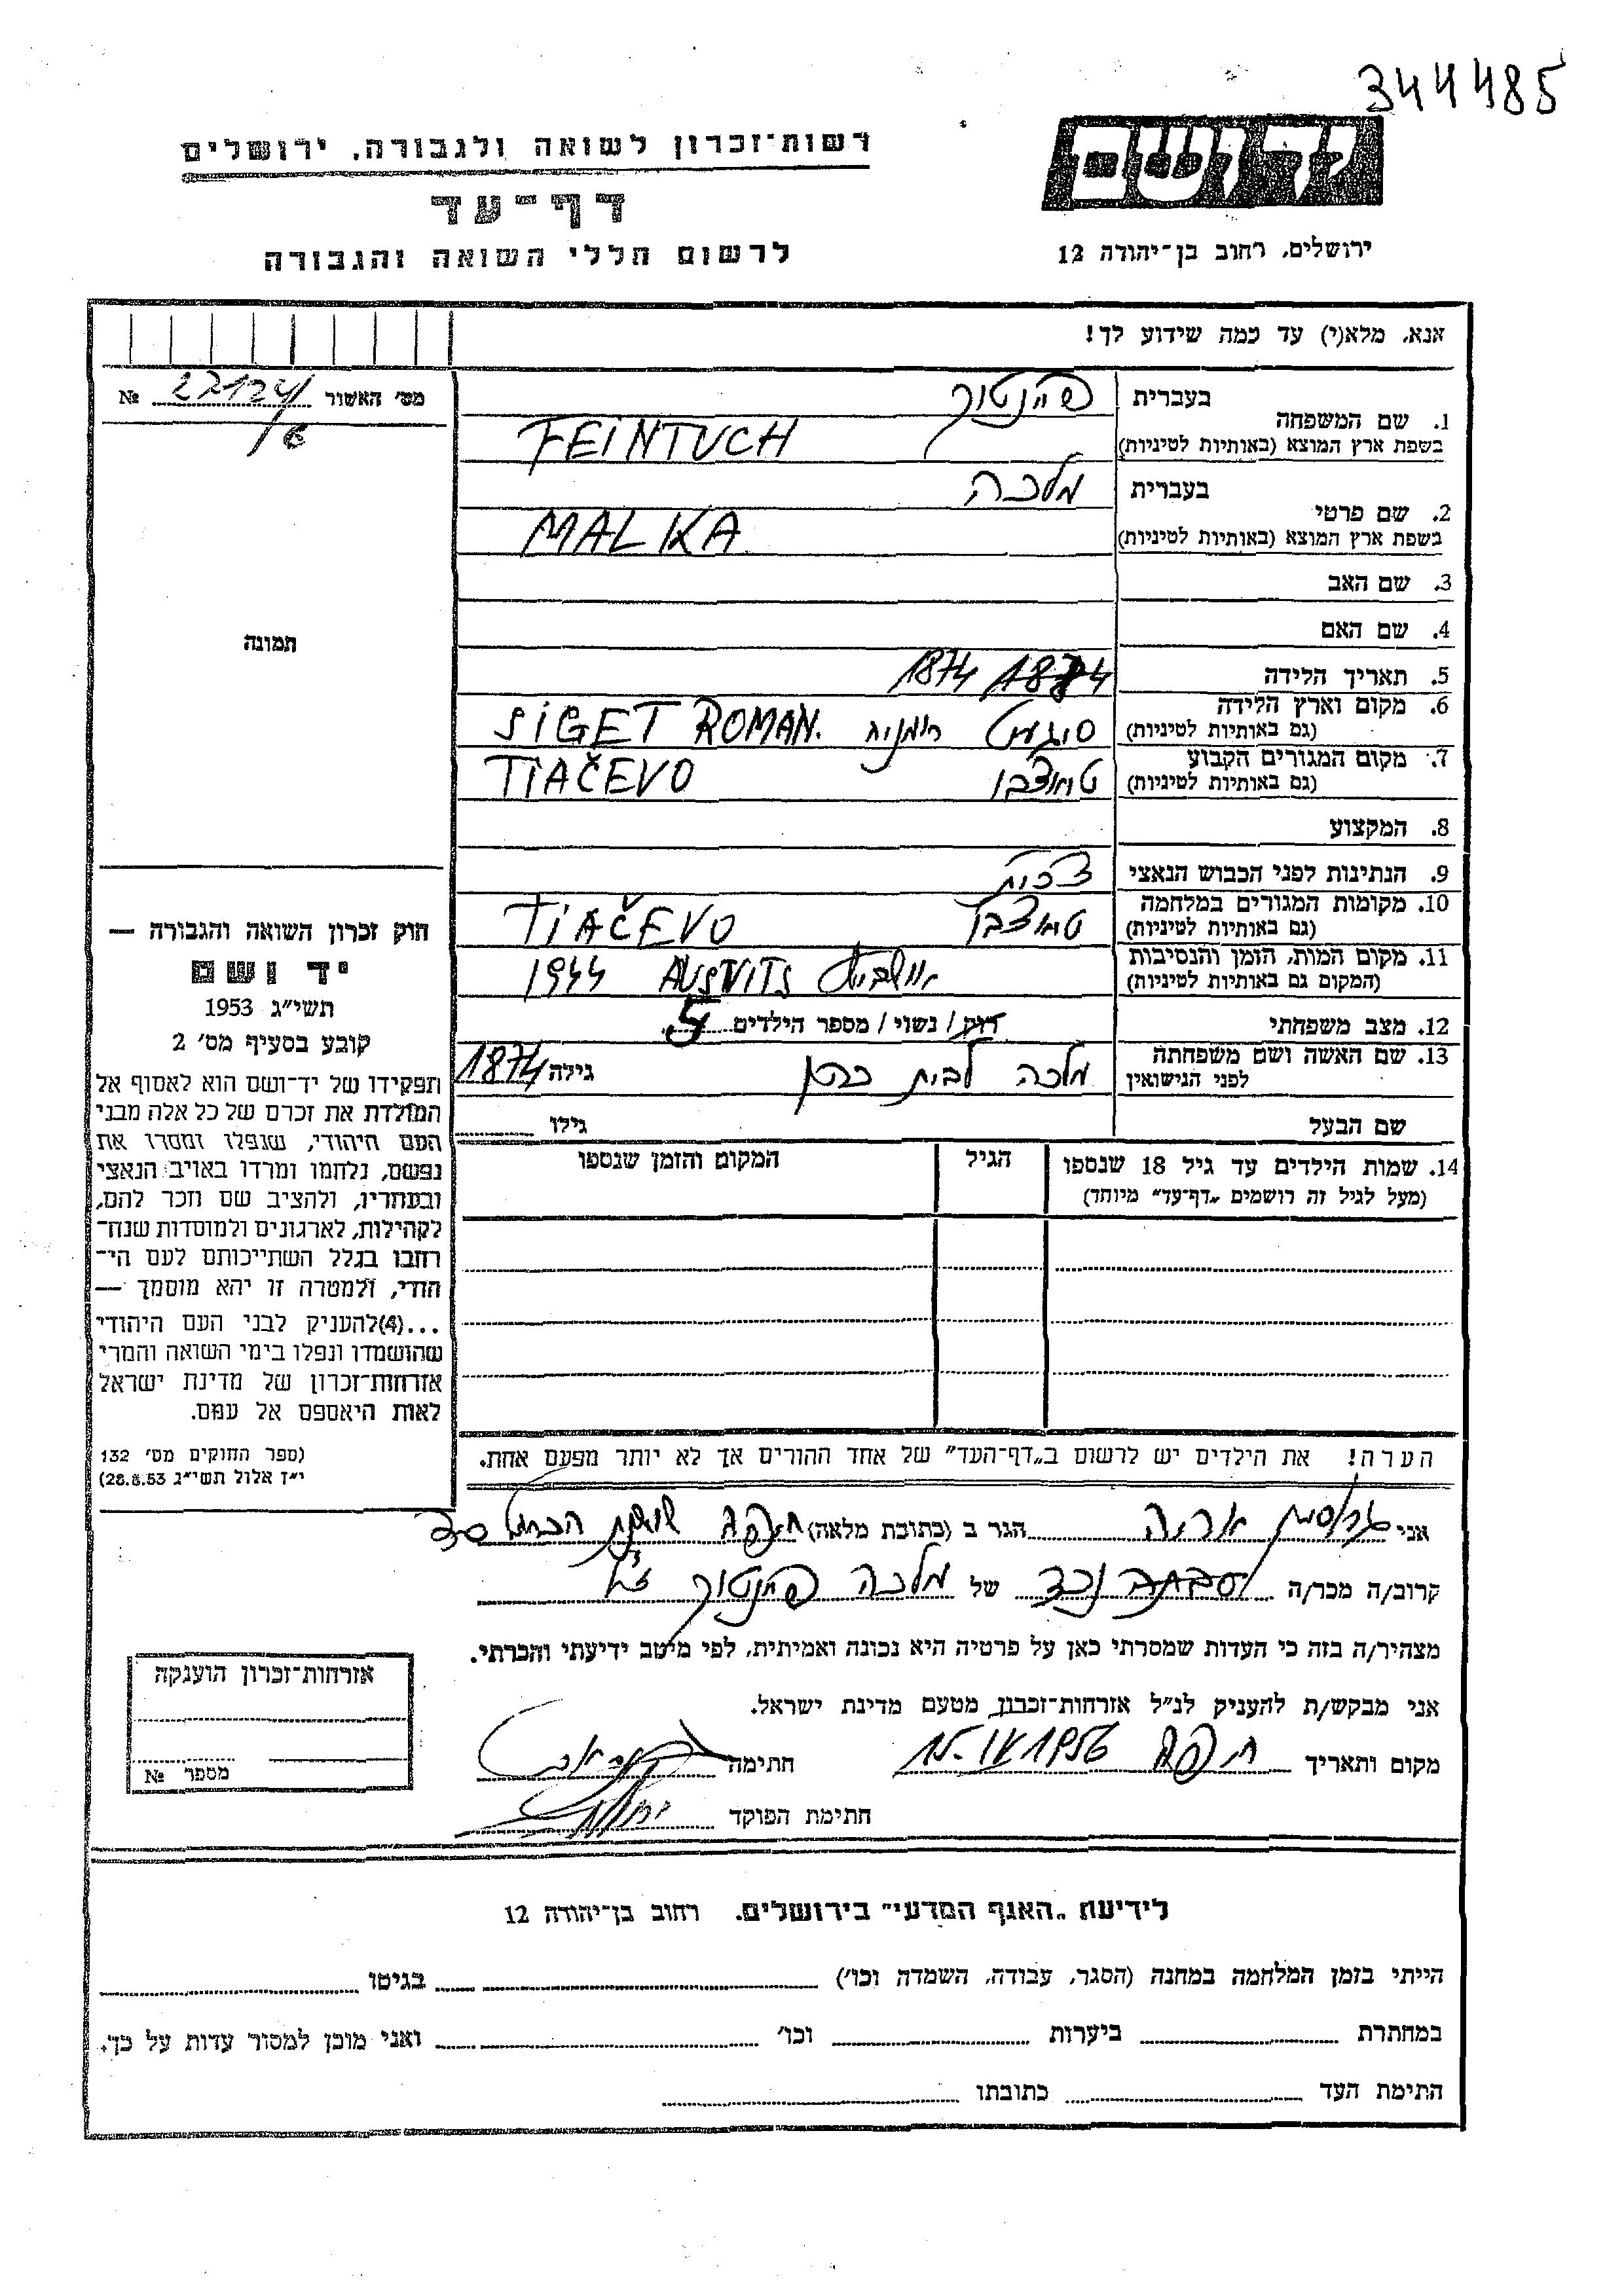 344485
רשות־זכרון לשואה ולגבורה, ירושלים
דף־עד
לרשום חללי השואה והגבורה
יד ושם
ירושלים, רחוב בן־יהודה 12
אנא, מלא(י) עד כמה שידוע לך!
מס' האשור 22124/ №
1. שם המשפחה
בעברית פיינטוך
בשפת ארץ המוצא (באותיות לטיניות) FEINTUCH
2. שם פרטי
בעברית מלכה
בשפת ארץ המוצא (באותיות לטיניות) MALKA
3. שם האב
4. שם האם
5. תאריך הלידה 1874
6. מקום וארץ הלידה סיגעט רומניה SIGET ROMAN.
(גם באותיות לטיניות)
7. מקום המגורים הקבוע טיאצבו TIAČEVO
(גם באותיות לטיניות)
8. המקצוע
9. הנתינות לפני הכבוש הנאצי צכית
10. מקומות המגורים במלחמה טיאצבו TIAČEVO
(גם באותיות לטיניות)
11. מקום המות, הזמן והנסיבות AUSVITS 1944
(המקום גם באותיות לטיניות)
12. מצב משפחתי רוק / נשוי / מספר הילדים 5
13. שם האשה ושם משפחתה לפני הנישואין מלכה לבית גילה 1874
שם הבעל גילו
14. שמות הילדים עד גיל 18 שנספו הגיל המקום והזמן שנספו
(מעל לגיל זה רושמים „דף־עד" מיוחד)
הערה! את הילדים יש לרשום ב„דף־העד" של אחד ההורים אך לא יותר מפעם אחת.
תמונה
חוק זכרון השואה והגבורה —
יד ושם
תשי"ג 1953
קובע בסעיף מס' 2
תפקידו של יד־ושם הוא לאסוף אל
המולדת את זכרם של כל אלה מבני
העם היהודי, שנפלו ומסרו את
נפשם, נלחמו ומרדו באויב הנאצי
ובעוזריו, ולהציב שם וזכר להם,
לקהילות, לארגונים ולמוסדות שנח־
רחבו בגלל השתייכותם לעם הי־
הודי, ולמטרה זו יהא מוסמך —
...(4)להעניק לבני העם היהודי
שהושמדו ונפלו בימי השואה והמרי
אזרחות־זכרון של מדינת ישראל
לאות היאספם אל עמם.
(ספר החוקים מס' 132
י"ז אלול תשי"ג 28.8.53)
אני אריה הגר ב (כתובת מלאה) חיפה
קרוב/ה מכר/ה נכד של מלכה פיינטוך ז"ל
מצהיר/ה בזה כי העדות שמסרתי כאן על פרטיה היא נכונה ואמיתית, לפי מיטב ידיעתי והכרתי.
אני מבקש/ת להעניק לנ"ל אזרחות־זכרון מטעם מדינת ישראל.
מקום ותאריך חיפה 15.IV 1956 חתימה
חתימת הפוקד
אזרחות־זכרון הוענקה
מספר №
לידיעת „האגף המדעי" בירושלים. רחוב בן־יהודה 12
הייתי בזמן המלחמה במחנה (הסגר, עבודה, השמדה וכו') בגיטו
במחתרת ביערות וכו' ואני מוכן למסור עדות על כך.
חתימת העד כתובתו